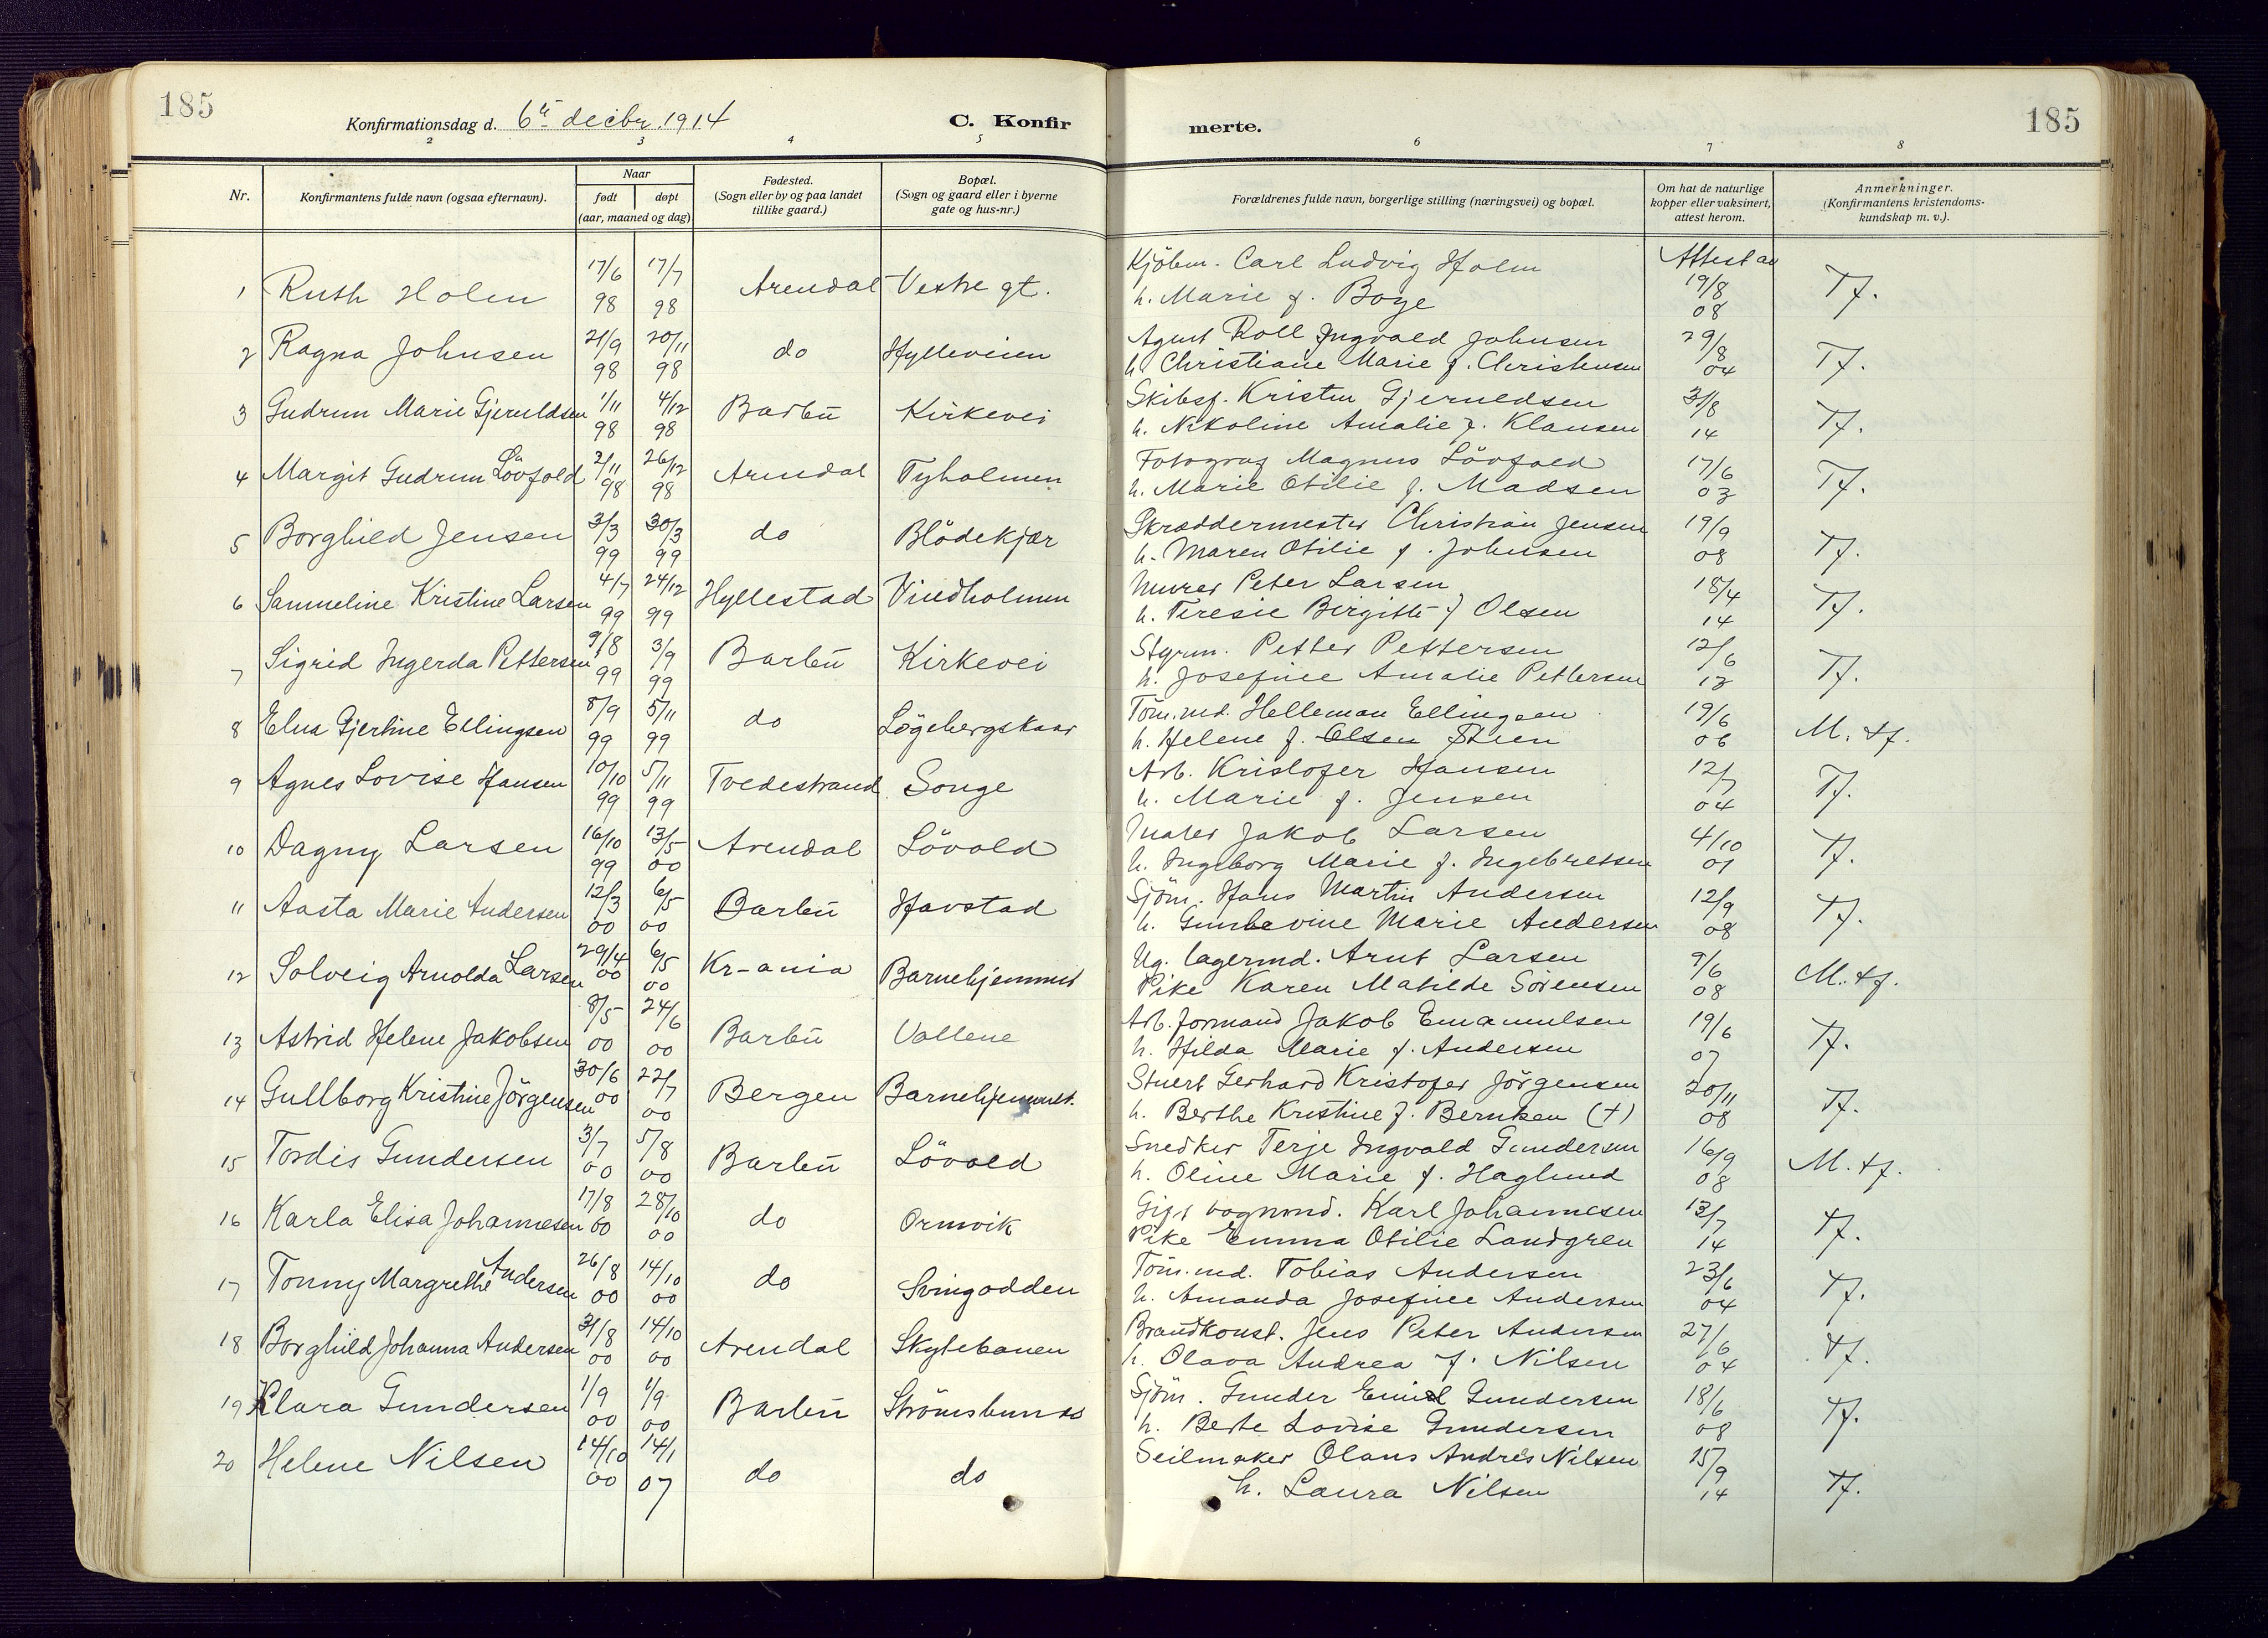 185
Konfirmationsdag d. 6te decbr. 1914
C. Konfirmerte.
185
2 3 4 5 6 7 8
Nr.
Konfirmantens fulde navn (ogsaa efternavn).
Naar
født døpt
(aar, maaned og dag)
Fødested.
(Sogn eller by og paa landet
tillike gaard.)
Bopæl.
(Sogn og gaard eller i byerne
gate og hus-nr.)
Forældrenes fulde navn, borgerlige stilling (næringsvei) og bopæl.
Om hat de naturlige
kopper eller vaksinert,
attest herom.
Anmerkninger.
(Konfirmantens kristendoms-
kundskap m. v.).
1 Ruth Holm 17/6 98 17/7 98 Arendal Vestre gt. Kjöbm. Carl Ludvig Holm Attest av 19/8 08 Tf.
h. Marie f. Boge
2 Ragna Johnsen 21/9 98 20/11 98 do Hylleveien Agent Roll Ingvald Johnsen 29/8 04 Tf.
h. Christiane Marie f. Christensen
3 Gudrun Marie Gjeruldsen 1/11 98 4/12 98 Barbu Kirkevei Skibsf. Kristen Gjeruldsen 31/8 14 Tf.
h. Nikoline Amalie f. Klausen
4 Margit Gudrun Lövfold 2/11 98 26/12 98 Arendal Tyholmen Fotograf Magnus Lövfold 17/6 03 Tf.
h. Marie Otilie f. Madsen
5 Borghild Jensen 3/3 99 30/3 99 do Blödekjær Skræddermester Christian Jensen 19/9 08 Tf.
h. Maren Otilie f. Johnsen
6 Sanneline Kristine Larsen 4/7 99 24/12 99 Hyllestad Vindholmen Murer Peter Larsen 18/4 14 Tf.
h. Teresie Birgitte f Olsen
7 Sigrid Ingerda Pettersen 9/8 99 3/9 99 Barbu Kirkevei Styrm. Petter Pettersen 12/6 13 Tf.
h. Josefine Amalie Pettersen
8 Elna Gjertine Ellingsen 8/9 99 5/11 99 do Lögebergskaar Töm.md. Helleman Ellingsen 19/6 06 M. tf.
h. Helene f. Olsen Steen
9 Agnes Lovise Hansen 10/10 99 5/11 99 Tvedestrand Songe Arb. Kristofer Hansen 12/7 04 Tf.
h. Marie f. Jensen
10 Dagny Larsen 16/10 99 13/5 00 Arendal Lövold Maler Jakob Larsen 4/10 01 Tf.
h. Ingeborg Marie f. Ingebretsen
11 Aasta Marie Andersen 12/3 00 6/5 00 Barbu Havstad Sjöm. Hans Martin Andersen 12/9 08 Tf.
h. Marie Andersen
12 Solveig Arnolda Larsen 29/4 00 6/5 00 Kr-ania Barnehjemmet Ug. lagermd. Arnt Larsen 9/6 08 M. tf.
Pike Karen Matilde Sörensen
13 Astrid Helene Jakobsen 8/5 00 24/6 00 Barbu Vollene Arb. formand Jakob Emanuelsen 19/6 07 Tf.
h. Hilda Marie f. Andersen
14 Gullborg Kristine Jörgensen 30/6 00 22/7 00 Bergen Barnehjemmet. Stuert Gerhard Kristofer Jörgensen 20/11 08 Tf.
h. Berthe Kristine f. Berntsen (+)
15 Tordis Gundersen 3/7 00 5/8 00 Barbu Lövold Snedker Terje Ingvald Gundersen 16/9 08 M. tf.
h. Oline Marie f. Haglund
16 Karla Elisa Johannesen 17/8 00 28/10 00 do Ormvik Gift vognmd. Karl Johannesen 13/7 14 Tf.
Pike Emma Otilie Landgren
17 Tonny Margrethe Andersen 26/8 00 14/10 00 do Svingodden Töm.md. Tobias Andersen 23/6 04 Tf.
h. Amanda Josefine Andersen
18 Borghild Johanna Andersen 31/8 00 14/10 00 Arendal Skytebanen Brandkonst. Jens Peter Andersen 27/6 04 Tf.
h. Olava Andrea f. Nilsen
19 Klara Gundersen 1/9 00 1/9 00 Barbu Strömsbunes Sjöm. Gunder Emil Gundersen 18/6 08 Tf.
h. Berte Lovise Gundersen
20 Helene Nilsen 14/10 00 14/1 07 do do Seilmaker Olaus Andres Nilsen 15/9 14 Tf.
h. Laura Nilsen